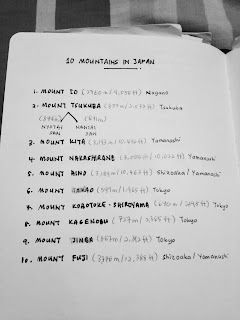 10 MOUNTAINS IN JAPAN
1. MOUNT IO (2760m / 9,055 ft) Nagano
2. MOUNT TSUKUBA (877m / 2,877 ft) Tsukuba
NYOTAI NANTAI
SAN SAN
3. MOUNT KITA (3,193m / 10,476 ft) Yamanashi
4. MOUNT NAKASHIRANE Yamanashi
5. MOUNT AINO (3,189m / 10,463 ft) Shizuoka / Yamanashi
6. MOUNT TAKAO (599m / 1,965 ft) Tokyo
7. MOUNT KOBOTOKE-SHIROYAMA (670m / 2198 ft) Tokyo
8. MOUNT KAGENOBU (727m / 2,385 ft) Tokyo
9. MOUNT JINBA Tokyo
10. MOUNT FUJI (3776m / 12,388 ft) Shizuoka / Yamanashi